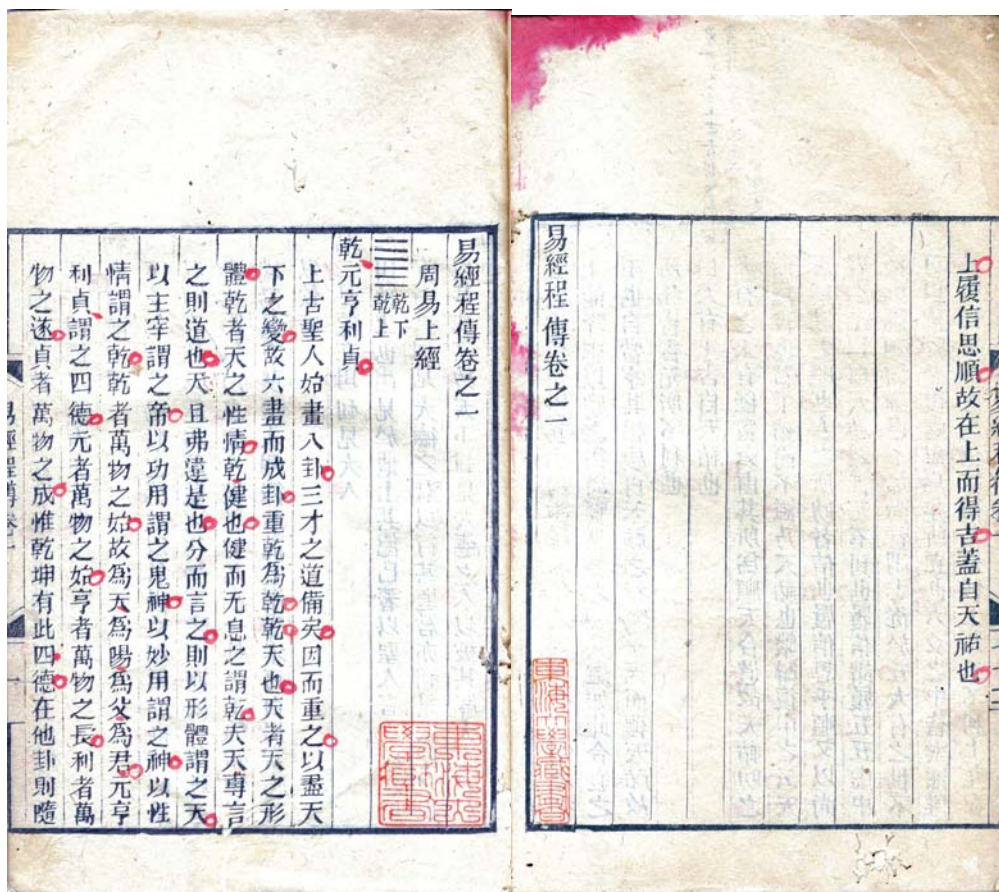 上履信思順故在上而得吉蓋自天祐也
易經程傳卷之一
東海大學藏書
易經程傳卷之一
周易上經
乾下
乾上
乾元亨利貞
上古聖人始畫八卦三才之道備矣因而重之以盡天
下之變故六畫而成卦重乾爲乾乾天也天者天之形
體乾者天之性情乾健也健而无息之謂乾夫天專言
之則道也天且弗違是也分而言之則以形體謂之天
以主宰謂之帝以功用謂之鬼神以妙用謂之神以性
情謂之乾乾者萬物之始故爲天爲陽爲父爲君元亨
利貞謂之四德元者萬物之始亨者萬物之長利者萬
物之遂貞者萬物之成惟乾坤有此四德在他卦則隨
易經程傳卷一
一